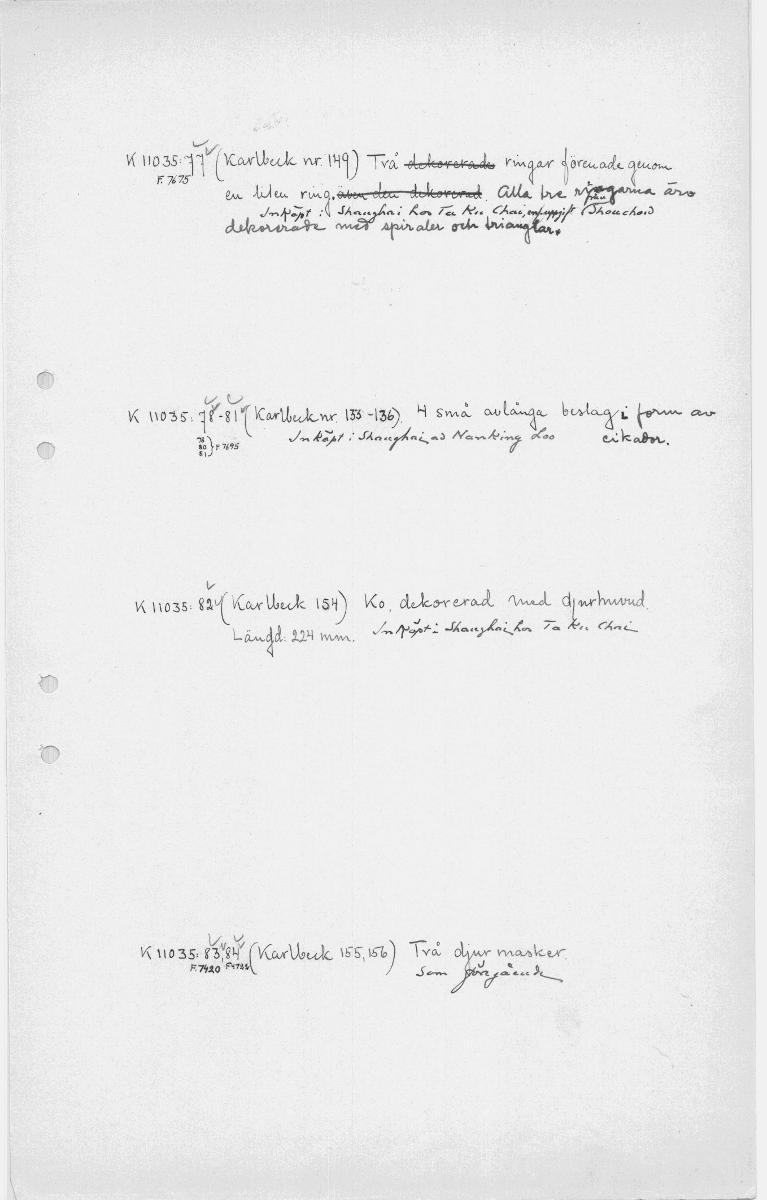 K 11035:77 (Karlbeck nr. 149) Två dekorerade ringar förenade genom
F. 7675
en liten ring, även den dekorerad. Alla tre ringarna äro
Inköpt i Shanghai hos Ta Ku Chai, enl. uppgift från Shouchow
dekorerade med spiraler och trianglar.
K 11035: 78-81 (Karlbeck nr. 133-136). 4 små avlånga beslag i form av
78
80 } F. 7695
81
Inköpt i Shanghai, av Nanking Loo
cikador.
K 11035: 82 (Karlbeck 154) Ko, dekorerad med djurhuvud.
Längd: 224 mm. Inköpt i Shanghai hos Ta Ku Chai
K 11035: 83, 84 (Karlbeck 155, 156) Två djurmasker.
F. 7420
Som föregående